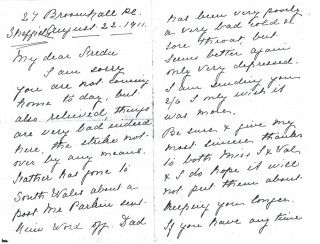 27 Broomhall Pl.
Sheffield August 22. 1911.
My dear Freda
I am sorry
you are not coming
home to day, but
also relieved, things
are very bad indeed
here, the strike not
over by any means.
Father has gone to
South Wales about a
post Mr Parkin sent
him word off. Dad
has been very poorly
a very bad cold &
sore throat, but
seems better again
only very depressed.
I am sending you
2/0 I only wish it
was more.
Be sure & give my
most sincere thanks
to both Miss
& I do hope it will
not put them about
keeping you longer.
If you have any time